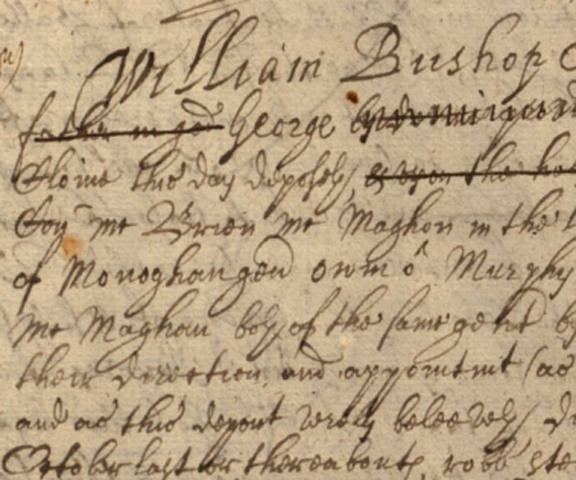 William Bushop
father in god George by
Cloine this day deposeth, & upon the
Coy mc Brien mc Maghon in the
of Monoghan gent owin ô Murphy
mc Maghan both of the same gent by
their direction, and appointmt (as
and as this depont verely beleeveth)
October last or thereabouts, robb